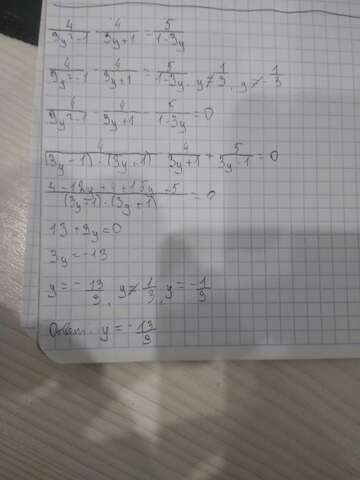 4/(9y²-1) - 4/(3y+1) = 5/(1-3y)
4/(9y²-1) - 4/(3y+1) = 5/(1-3y), y≠1/3, y≠-1/3
4/(9y²-1) - 4/(3y+1) - 5/(1-3y) = 0
4/((3y-1)·(3y+1)) - 4/(3y+1) + 5/(3y-1) = 0
(4-12y+4+15y+5)/((3y-1)·(3y+1)) = 0
13+3y=0
3y=-13
y=-13/3, y≠1/3, y≠-1/3
Ответ: y=-13/3